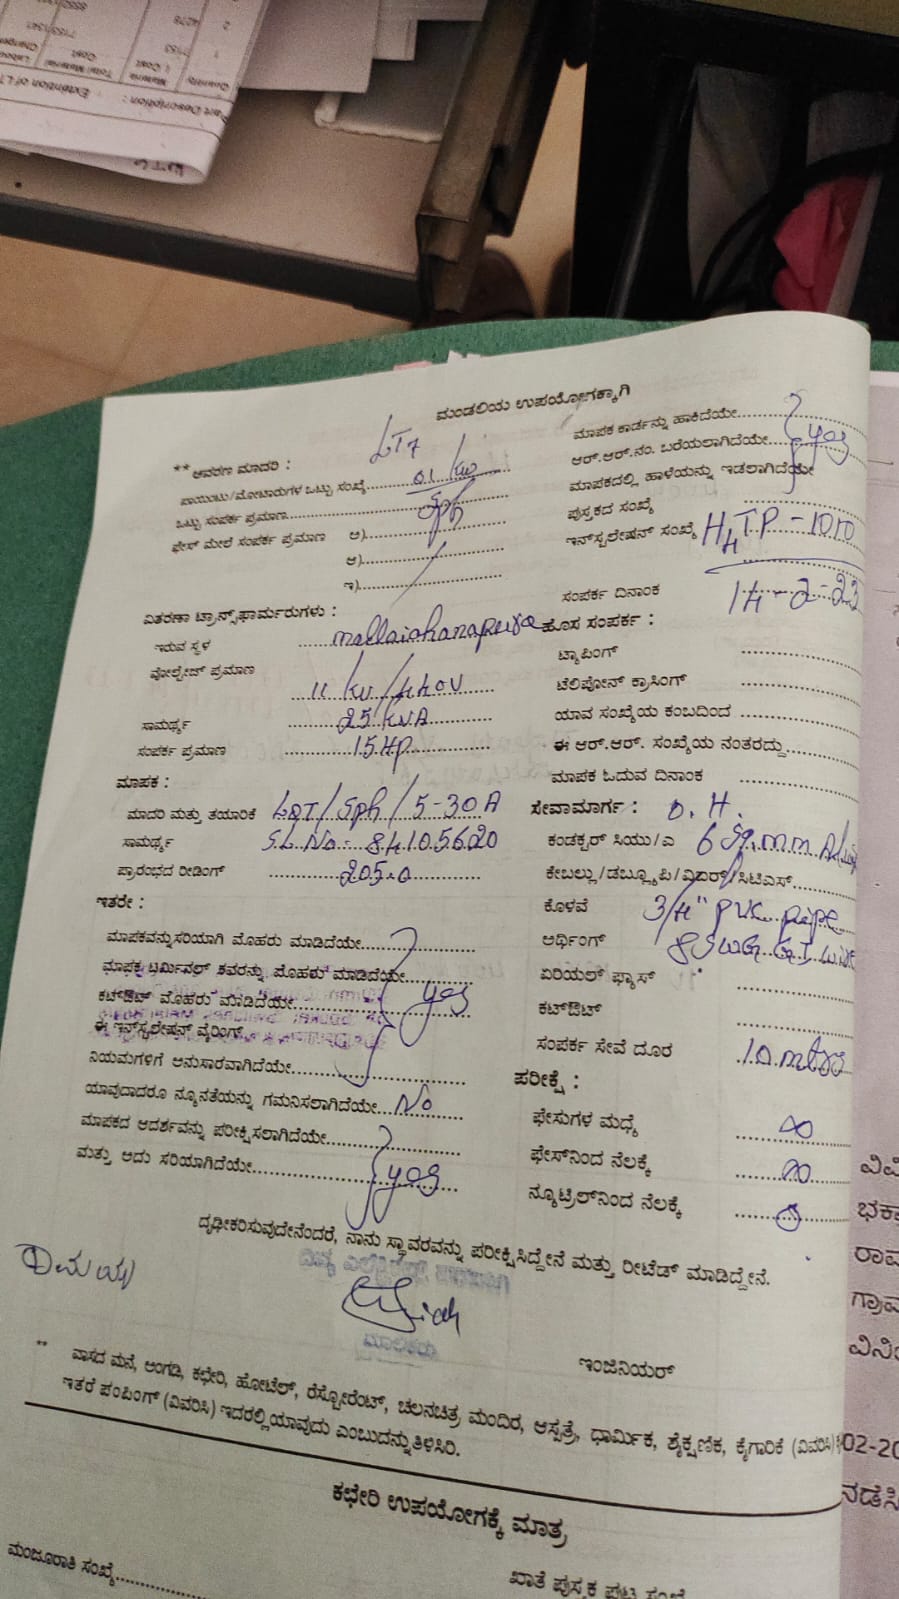 Part Description :
Extention of LT
Quantity
Material Cost
Total Material Cost
1
7153
2
4278
ಮಂಡಲಿಯ ಉಪಯೋಗಕ್ಕಾಗಿ
** ಆವರಣ ಮಾದರಿ : LT7
ಪಾಯಿಂಟು/ಮೋಟಾರುಗಳ ಒಟ್ಟು ಸಂಖ್ಯೆ 01 kw
ಒಟ್ಟು ಸಂಪರ್ಕ ಪ್ರಮಾಣ
ಫೇಸ್ ಮೇಲೆ ಸಂಪರ್ಕ ಪ್ರಮಾಣ ಅ)
ಆ)
ಇ)
ವಿತರಣಾ ಟ್ರಾನ್ಸ್‌ಫಾರ್ಮರುಗಳು :
ಇರುವ ಸ್ಥಳ
ವೋಲ್ಟೇಜ್ ಪ್ರಮಾಣ 11 kv/440V
ಸಾಮರ್ಥ್ಯ 25 KVA
ಸಂಪರ್ಕ ಪ್ರಮಾಣ 15HP
ಮಾಪಕ :
ಮಾದರಿ ಮತ್ತು ತಯಾರಿಕೆ L&T/Sph/5-30A
ಸಾಮರ್ಥ್ಯ SL No: 84105620
ಪ್ರಾರಂಭದ ರೀಡಿಂಗ್ 205.0
ಇತರೇ :
ಮಾಪಕವನ್ನು ಸರಿಯಾಗಿ ಮೊಹರು ಮಾಡಿದೆಯೇ
ಮಾಪಕ ಟರ್ಮಿನಲ್ ಕವರನ್ನು ಮೊಹರು ಮಾಡಿದೆಯೇ
ಕಟ್‌ಔಟ್ ಮೊಹರು ಮಾಡಿದೆಯೇ yes
ಈ ಇನ್‌ಸ್ಟಲೇಷನ್ ವೈರಿಂಗ್
ನಿಯಮಗಳಿಗೆ ಅನುಸಾರವಾಗಿದೆಯೇ
ಯಾವುದಾದರೂ ನ್ಯೂನತೆಯನ್ನು ಗಮನಿಸಲಾಗಿದೆಯೇ No
ಮಾಪಕದ ಆದರ್ಶವನ್ನು ಪರೀಕ್ಷಿಸಲಾಗಿದೆಯೇ
ಮತ್ತು ಅದು ಸರಿಯಾಗಿದೆಯೇ yes
ಮಾಪಕ ಕಾರ್ಡನ್ನು ಹಾಕಿದೆಯೇ
ಆರ್.ಆರ್.ನಂ. ಬರೆಯಲಾಗಿದೆಯೇ yes
ಮಾಪಕದಲ್ಲಿ ಹಾಳೆಯನ್ನು ಇಡಲಾಗಿದೆಯೇ
ಪುಸ್ತಕದ ಸಂಖ್ಯೆ
ಇನ್‌ಸ್ಟಲೇಷನ್ ಸಂಖ್ಯೆ H4TP-1010
ಸಂಪರ್ಕ ದಿನಾಂಕ 14-2-23
ಹೊಸ ಸಂಪರ್ಕ :
ಟ್ಯಾಪಿಂಗ್
ಟೆಲಿಪೋನ್ ಕ್ರಾಸಿಂಗ್
ಯಾವ ಸಂಖ್ಯೆಯ ಕಂಬದಿಂದ
ಈ ಆರ್.ಆರ್. ಸಂಖ್ಯೆಯ ನಂತರದ್ದು
ಮಾಪಕ ಓದುವ ದಿನಾಂಕ
ಸೇವಾಮಾರ್ಗ : O.H.
ಕಂಡಕ್ಟರ್ ಸಿಯು/ಎ 6 Sq.mm
ಕೇಬಲ್ಲು/ಡಬ್ಲ್ಯೂಪಿ/ವಿಐಆರ್/ಸಿಟಿಎಸ್
ಕೊಳವೆ 3/4" PVC pipe
ಅರ್ಥಿಂಗ್ 8 SWG GI
ಏರಿಯಲ್ ಫ್ಯೂಸ್
ಕಟ್‌ಔಟ್
ಸಂಪರ್ಕ ಸೇವೆ ದೂರ
ಪರೀಕ್ಷೆ :
ಫೇಸುಗಳ ಮಧ್ಯೆ ∞
ಫೇಸ್‌ನಿಂದ ನೆಲಕ್ಕೆ ∞
ನ್ಯೂಟ್ರಲ್‌ನಿಂದ ನೆಲಕ್ಕೆ
ದೃಢೀಕರಿಸುವುದೇನೆಂದರೆ, ನಾನು ಸ್ಥಾವರವನ್ನು ಪರೀಕ್ಷಿಸಿದ್ದೇನೆ ಮತ್ತು ರೀಟೆಡ್ ಮಾಡಿದ್ದೇನೆ.
ಮಾಲೀಕರು
ಇಂಜಿನಿಯರ್
** ವಾಸದ ಮನೆ, ಅಂಗಡಿ, ಕಛೇರಿ, ಹೋಟೆಲ್, ರೆಸ್ಟೋರೆಂಟ್, ಚಲನಚಿತ್ರ ಮಂದಿರ, ಆಸ್ಪತ್ರೆ, ಧಾರ್ಮಿಕ, ಶೈಕ್ಷಣಿಕ, ಕೈಗಾರಿಕೆ (ವಿವರಿಸಿ)
ಇತರೆ ಪಂಪಿಂಗ್ (ವಿವರಿಸಿ) ಇದರಲ್ಲಿ ಯಾವುದು ಎಂಬುದನ್ನು ತಿಳಿಸಿರಿ.
ಕಛೇರಿ ಉಪಯೋಗಕ್ಕೆ ಮಾತ್ರ
ಮಂಜೂರಾತಿ ಸಂಖ್ಯೆ
ಖಾತೆ ಪುಸ್ತಕ ಪುಟ ಸಂಖ್ಯೆ